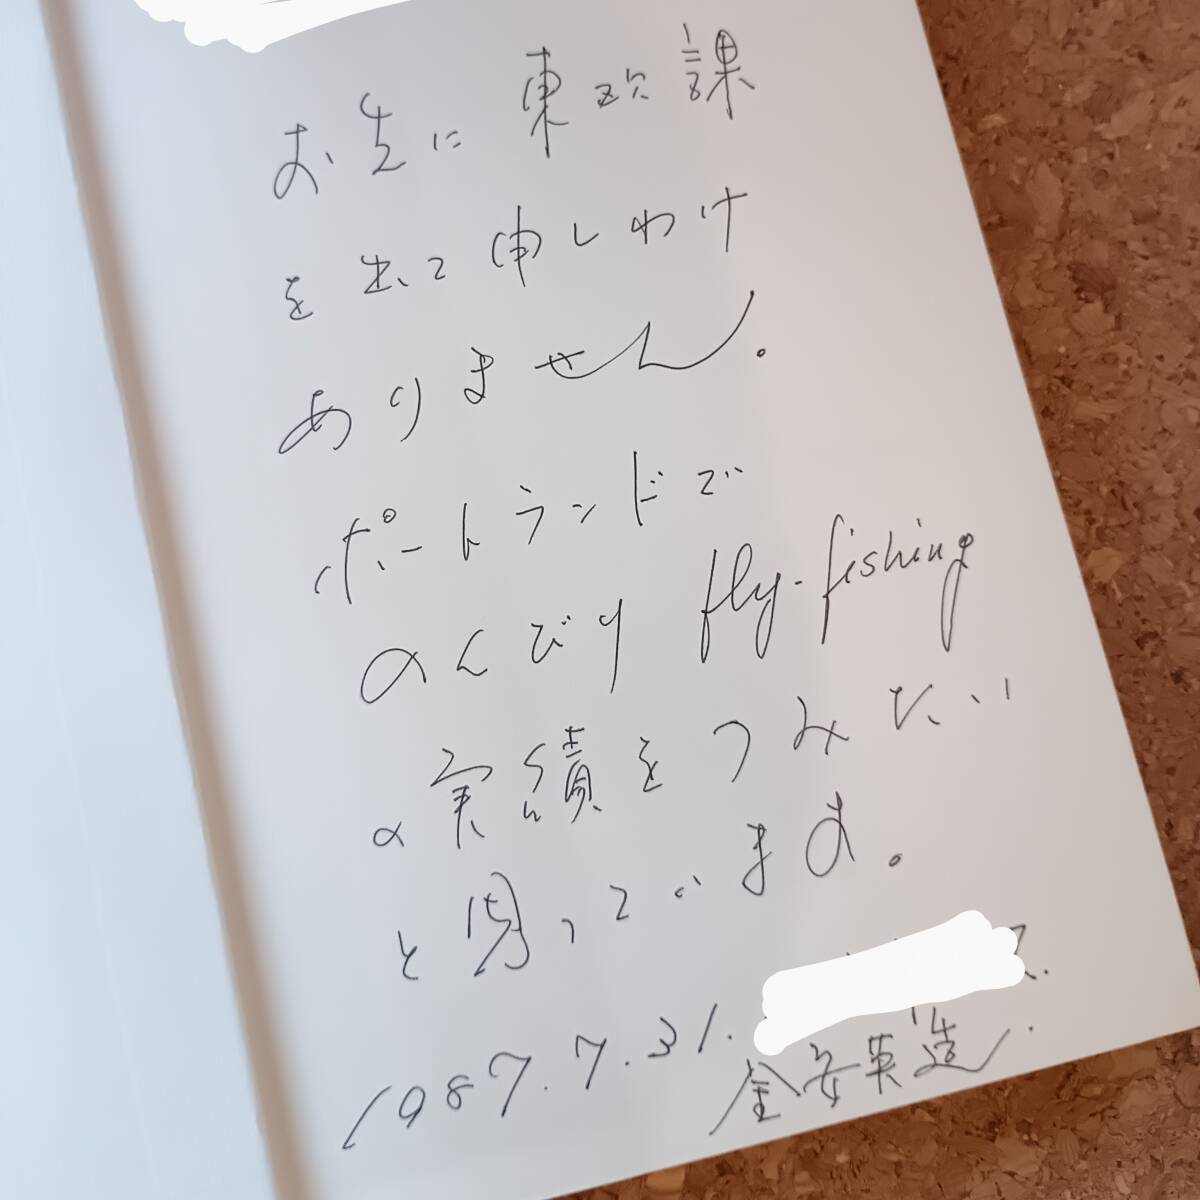 お先に東欧課
を出て申しわけ
ありません。
ポートランドで
のんびり fly-fishing
の実績をつみたい
と思っています。
1987.7.31.
金安英造